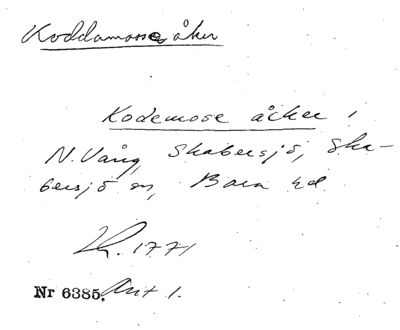 Koddamosse åker
Kodemose åcker i
N. Vång, Skabersjö, Ska-
bersjö sn, Bara hd
LK. 1771
Nr 6385. Akt 1.